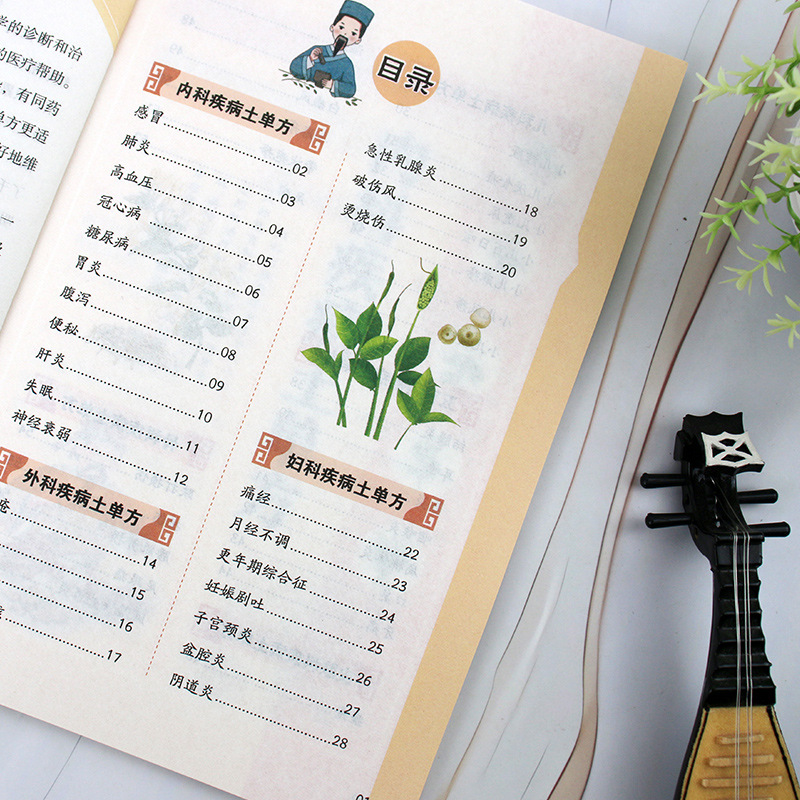 学的诊断和治
的医疗帮助。
，有同药
单方更适
好地维
目录
内科疾病土单方
感冒……02
肺炎……03
高血压……04
冠心病……05
糖尿病……06
胃炎……07
腹泻……08
便秘……09
肝炎……10
失眠……11
神经衰弱……12
外科疾病土单方
疮……14
……15
……16
……17
急性乳腺炎……18
破伤风……19
烫烧伤……20
妇科疾病土单方
痛经……22
月经不调……23
更年期综合征……24
妊娠剧吐……25
子宫颈炎……26
盆腔炎……27
阴道炎……28
01